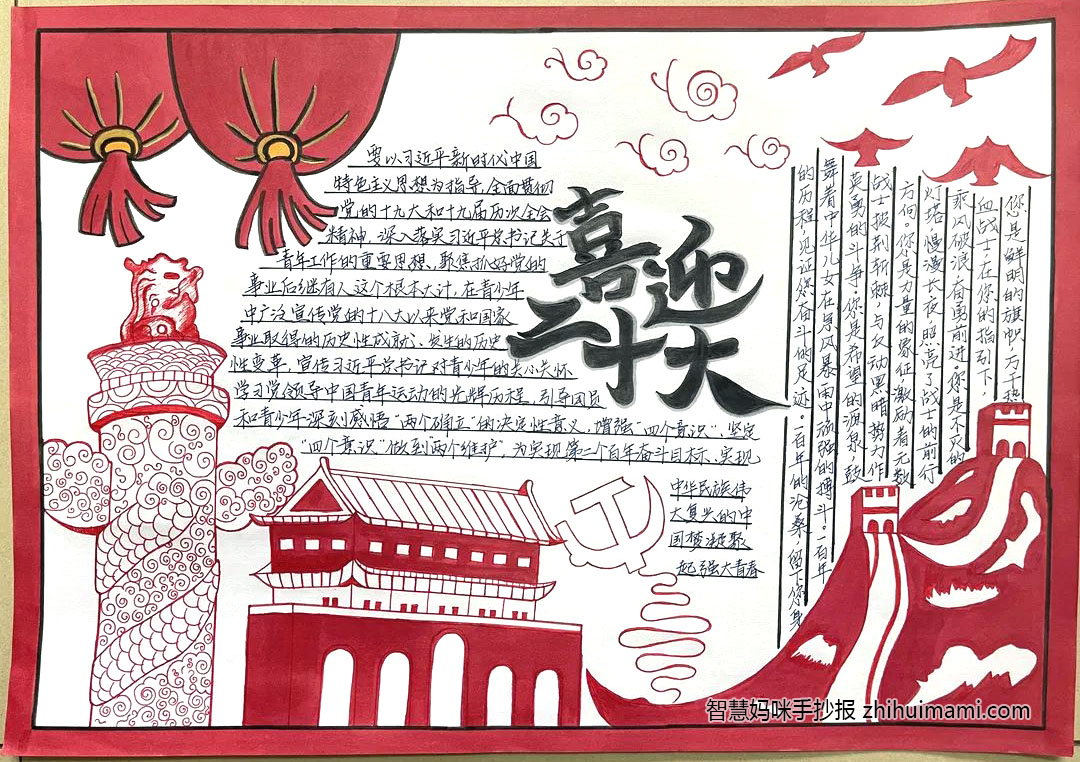 喜迎
二十大
要以习近平新时代中国
特色主义思想为指导,全面贯彻
党的十九大和十九届历次全会
精神,深入落实习近平总书记关于
青年工作的重要思想,聚焦抓好党的
事业后继有人这个根本大计,在青少年
中广泛宣传党的十八大以来党和国家
事业取得的历史性成就、发生的历史
性变革,宣传习近平总书记对青少年的关心关怀
学习党领导中国青年运动的光辉历程,引导团员
和青少年深刻感悟“两个确立”的决定性意义,增强“四个意识”、坚定
“四个意识”做到两个维护,为实现第二个百年奋斗目标、实现
中华民族伟
大复兴的中
国梦凝聚
起强大青春
您是鲜明的旗帜,万千热
血战士,在您的指引下,
乘风破浪,奋勇前进。您是不灭的
灯塔,慢漫长夜,照亮了战士的前行
方向。您是力量的象征,激励着无数
战士披荆斩棘,与反动黑暗势力作
英勇的斗争,您是希望的源泉,鼓
舞着中华儿女在恶风暴雨中顽强的搏斗。一百年
的历程,见证您奋斗的足迹。一百年的沧桑,留下您身
智慧妈咪手抄报 zhihuimami.com